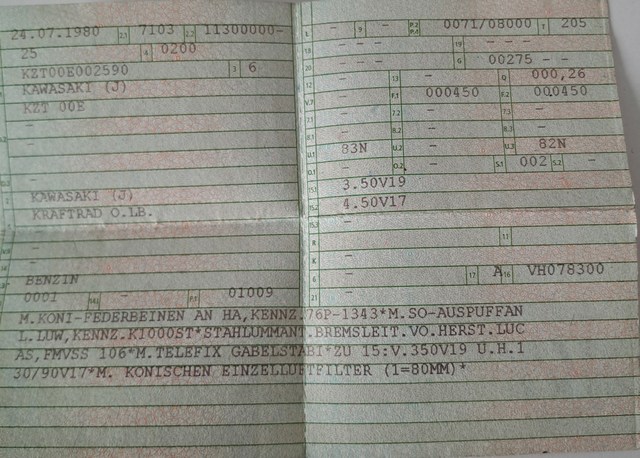 24.07.1980 2.1 7103 2.2 11300000-
25 4 0200
KZT00E002590 3 6
KAWASAKI (J)
KZT 00E
-
-
-
-
KAWASAKI (J)
KRAFTRAD O.LB.
-
-
BENZIN
0001 14.1 - P.1 01009
L - 9 - P.2 P.4 0071/08000 T 205
18 - 19 -
20 - G 00275 - -
12 - 13 - Q 000,26 -
V.7 - F.1 000450 F.2 000450
7.1 - 7.2 - 7.3 -
8.1 - 8.2 - 8.3 -
U.1 83N U.2 - U.3 82N
O.1 - O.2 - S.1 002 S.2 -
15.1 3.50V19
15.2 4.50V17
15.3 -
R - 11
K -
6 - 17 A 16 VH078300
21 -
M.KONI-FEDERBEINEN AN HA,KENNZ.76P-1343*M.SO-AUSPUFFAN
L.LUW,KENNZ.K1000ST*STAHLUMMANT.BREMSLEIT.VO.HERST.LUC
AS,FMVSS 106*M.TELEFIX GABELSTABI*ZU 15:V.350V19 U.H.1
30/90V17*M. KONISCHEN EINZELLUFTFILTER (1=80MM)*